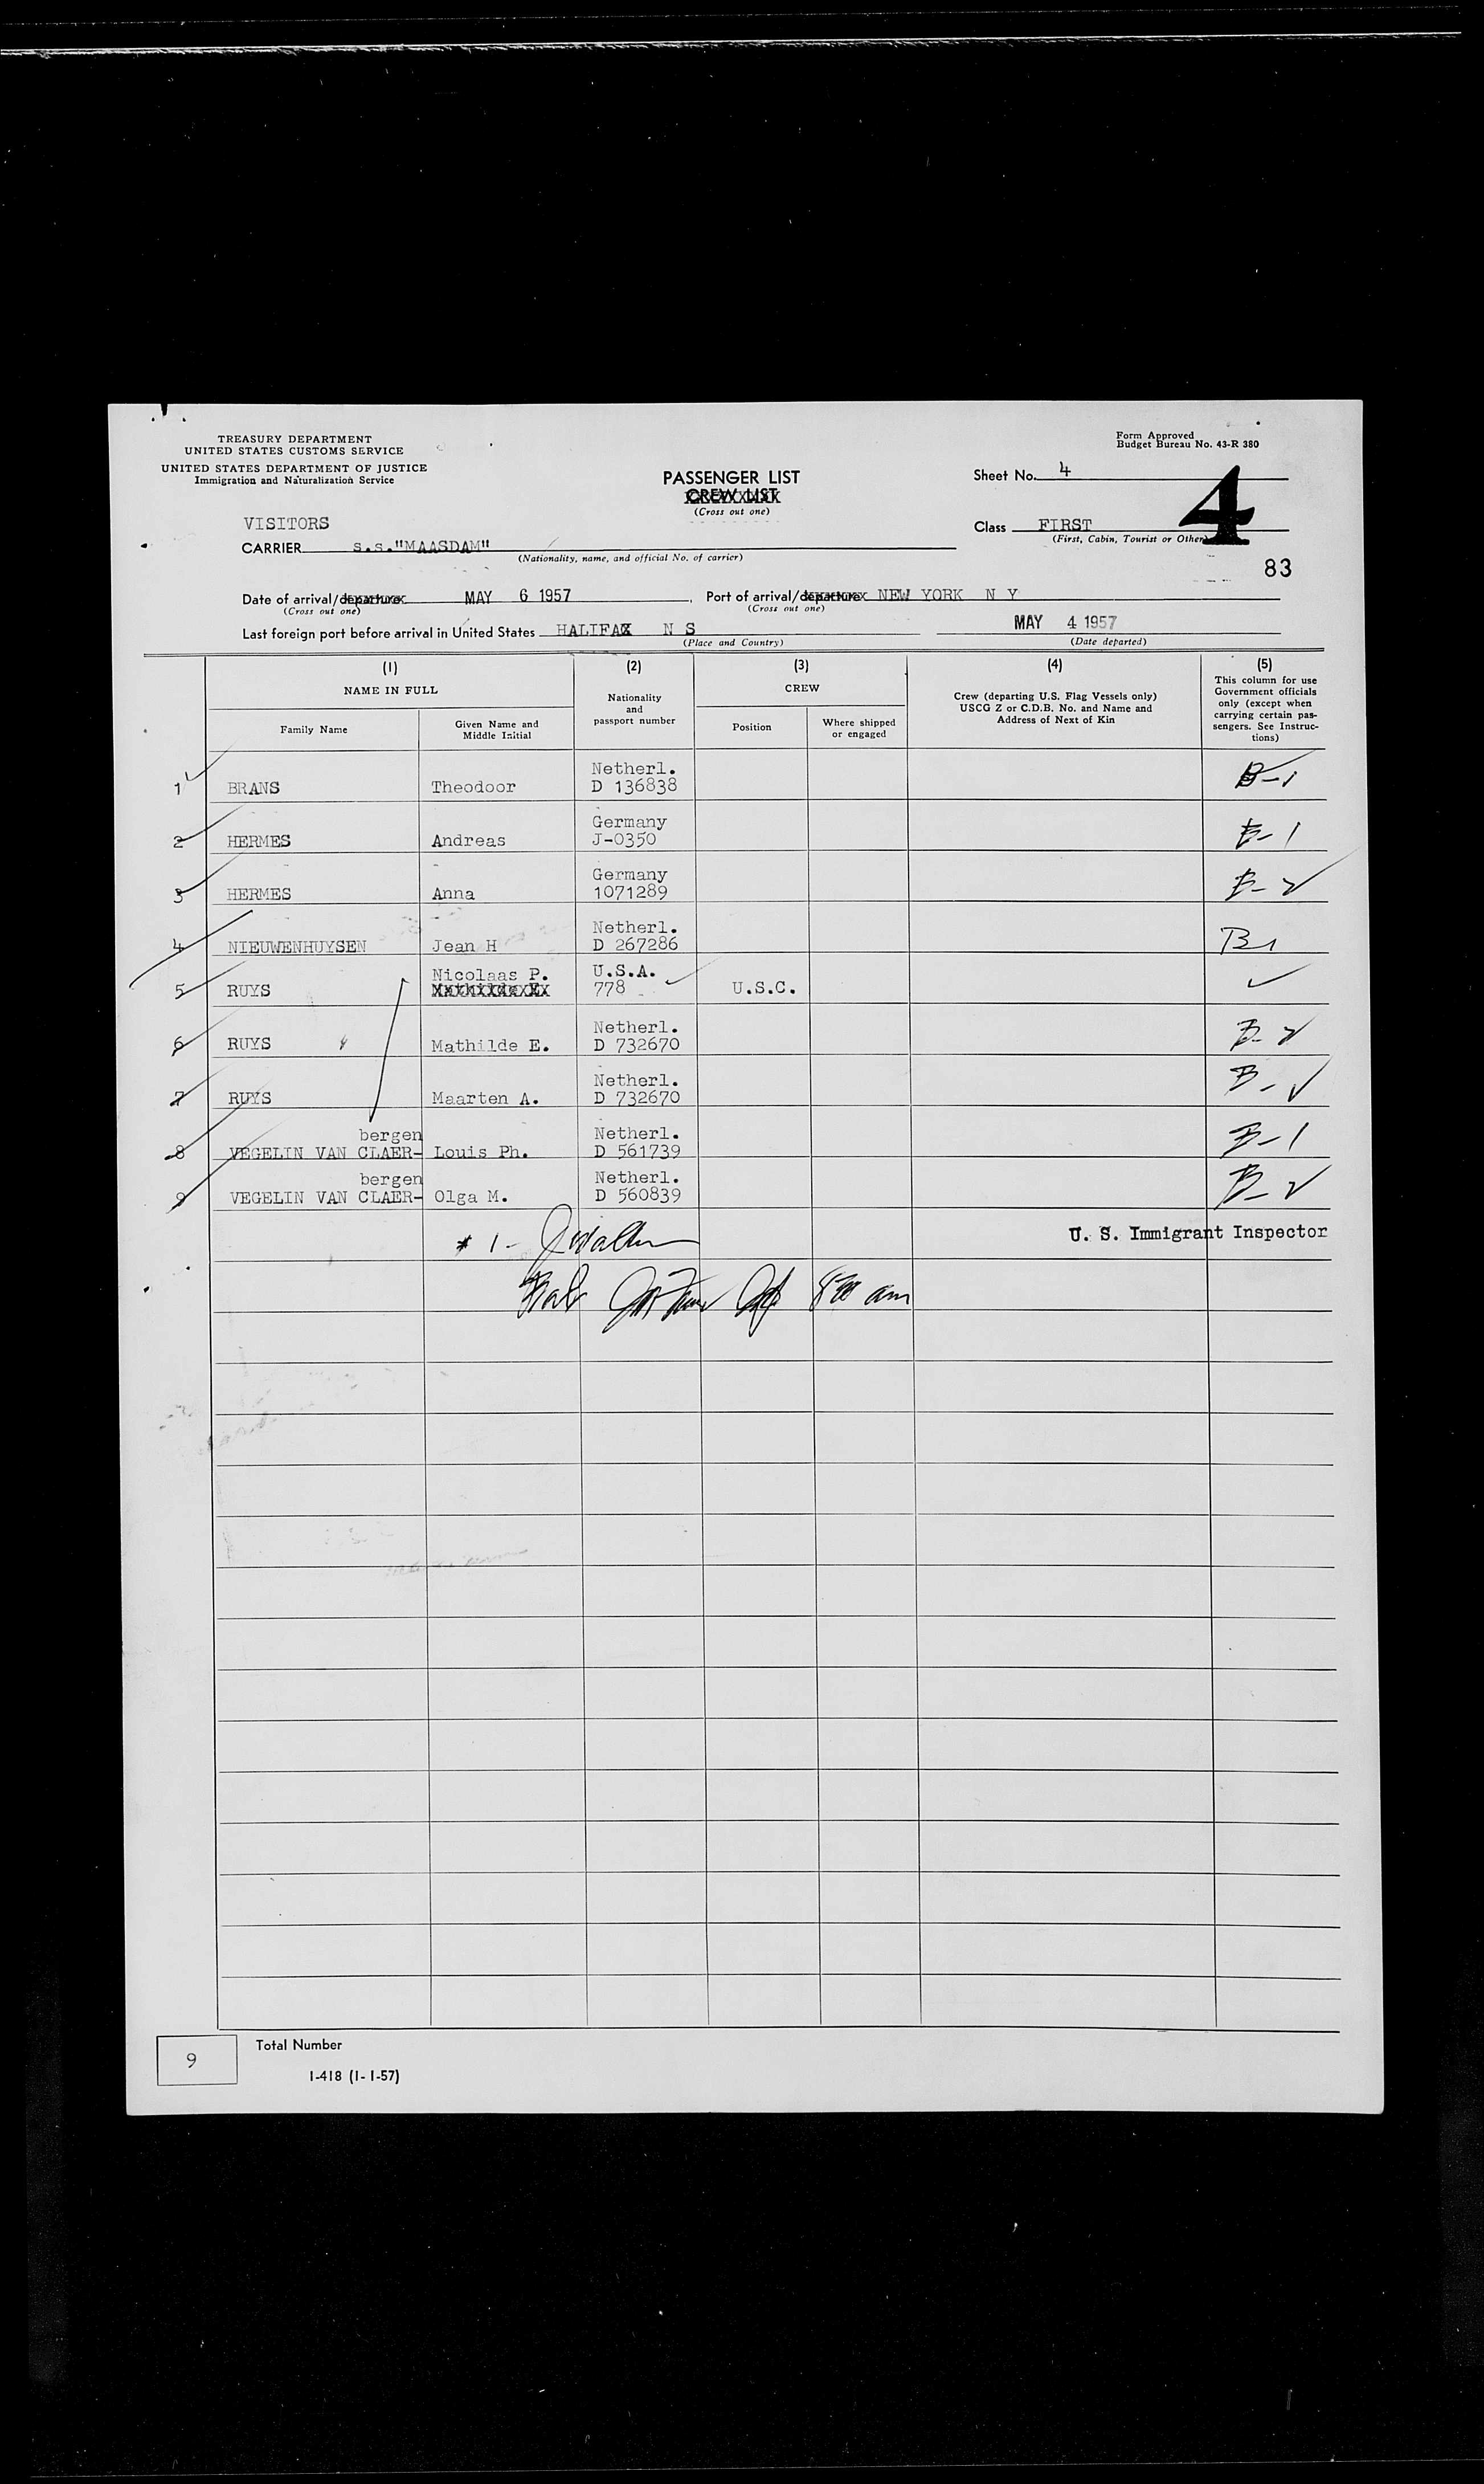 TREASURY DEPARTMENT
UNITED STATES CUSTOMS SERVICE
UNITED STATES DEPARTMENT OF JUSTICE
Immigration and Naturalization Service
Form Approved
Budget Bureau No. 43-R 380
PASSENGER LIST
CREW LIST
(Cross out one)
Sheet No. 4
4
VISITORS
CARRIER s.s."MAASDAM"
(Nationality, name, and official No. of carrier)
Class FIRST
(First, Cabin, Tourist or Other)
83
Date of arrival/departure MAY 6 1957, Port of arrival/departure NEW YORK N Y
(Cross out one) (Cross out one)
Last foreign port before arrival in United States HALIFAX N S MAY 4 1957
(Place and Country) (Date departed)
(1) (2) (3) (4) (5)
NAME IN FULL
Family Name
Given Name and
Middle Initial
Nationality
and
passport number
CREW
Position
Where shipped
or engaged
Crew (departing U.S. Flag Vessels only)
USCG Z or C.D.B. No. and Name and
Address of Next of Kin
This column for use
Government officials
only (except when
carrying certain pas-
sengers. See Instruc-
tions)
Netherl.
1 BRANS Theodoor D 136838 B-1
Germany
2 HERMES Andreas J-0350 B-1
Germany
3 HERMES Anna 1071289 B-2
Netherl.
4 NIEUWENHUYSEN Jean H D 267286 B1
Nicolaas P. U.S.A.
5 RUYS Mathilde E 778 U.S.C.
Netherl.
6 RUYS Mathilde E. D 732670 B-2
Netherl.
7 RUYS Maarten A. D 732670 B-2
bergen Netherl.
8 VEGELIN VAN CLAER- Louis Ph. D 561739 B-1
bergen Netherl.
9 VEGELIN VAN CLAER- Olga M. D 560839 B-2
# 1-
U. S. Immigrant Inspector
am
9 Total Number
I-418 (1-1-57)